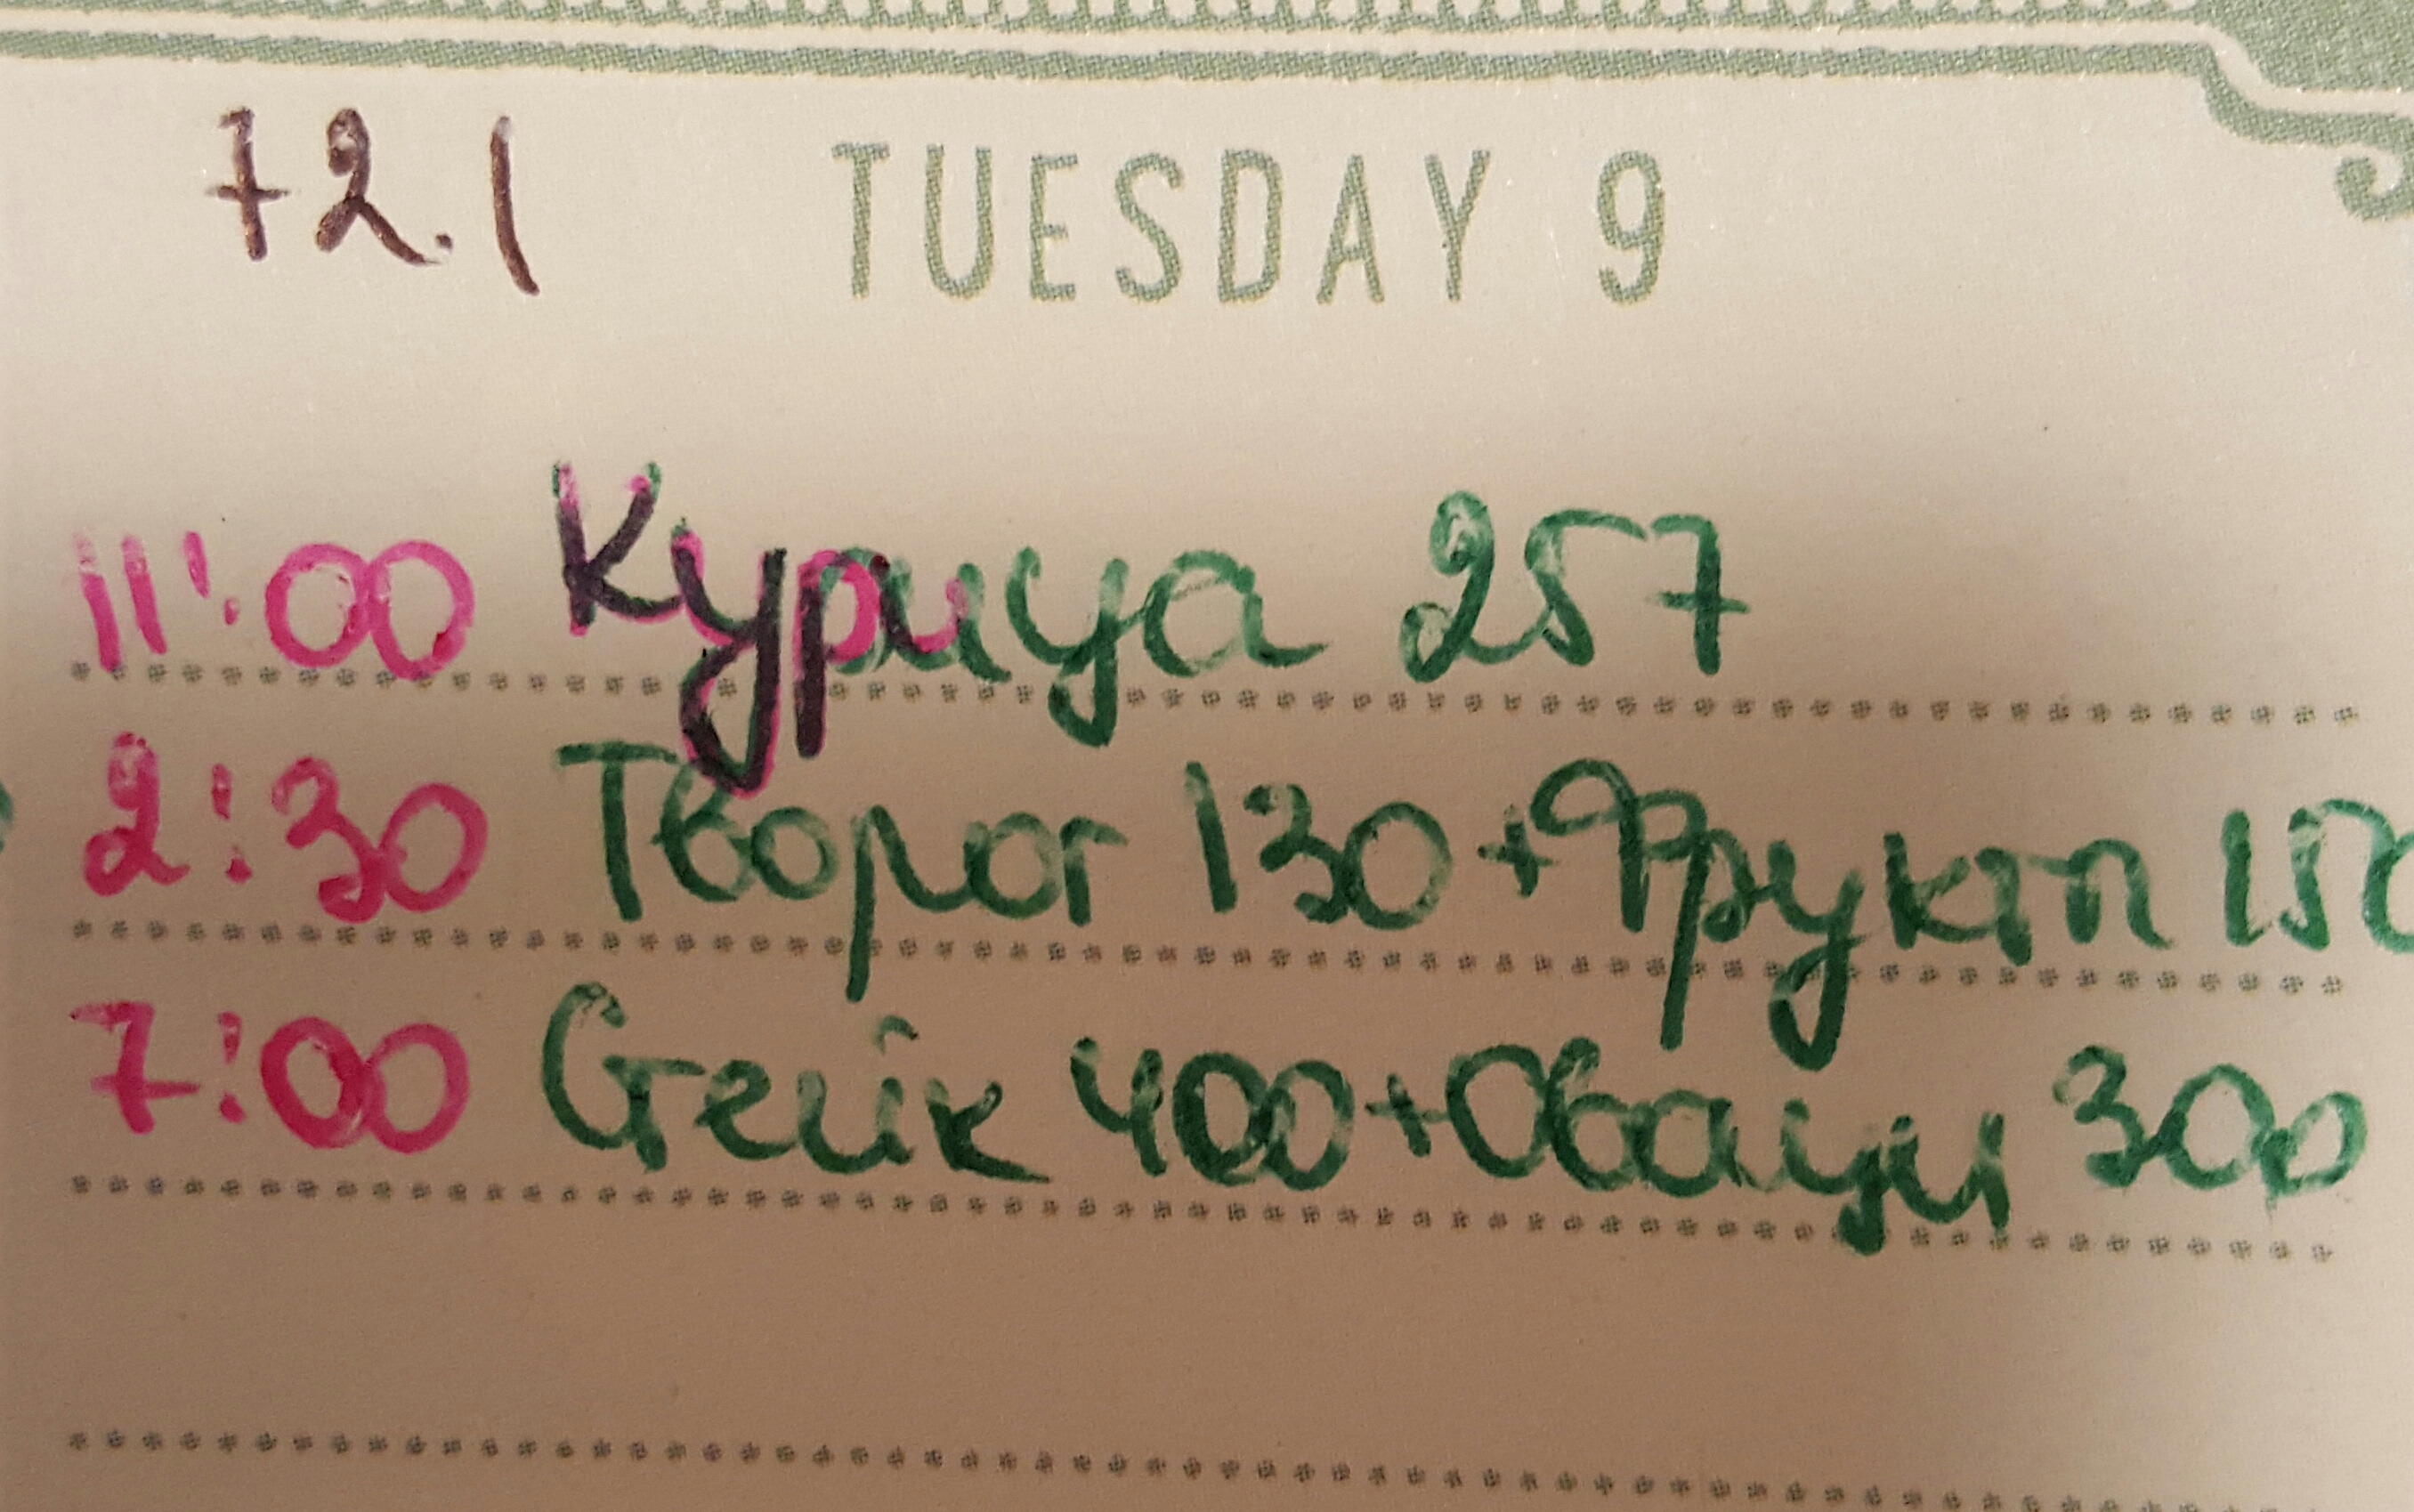 72.1 TUESDAY 9
11:00 Курица 257
2:30 Творог 130+Фрукт 150
7:00 Стейк 400+Овощи 300